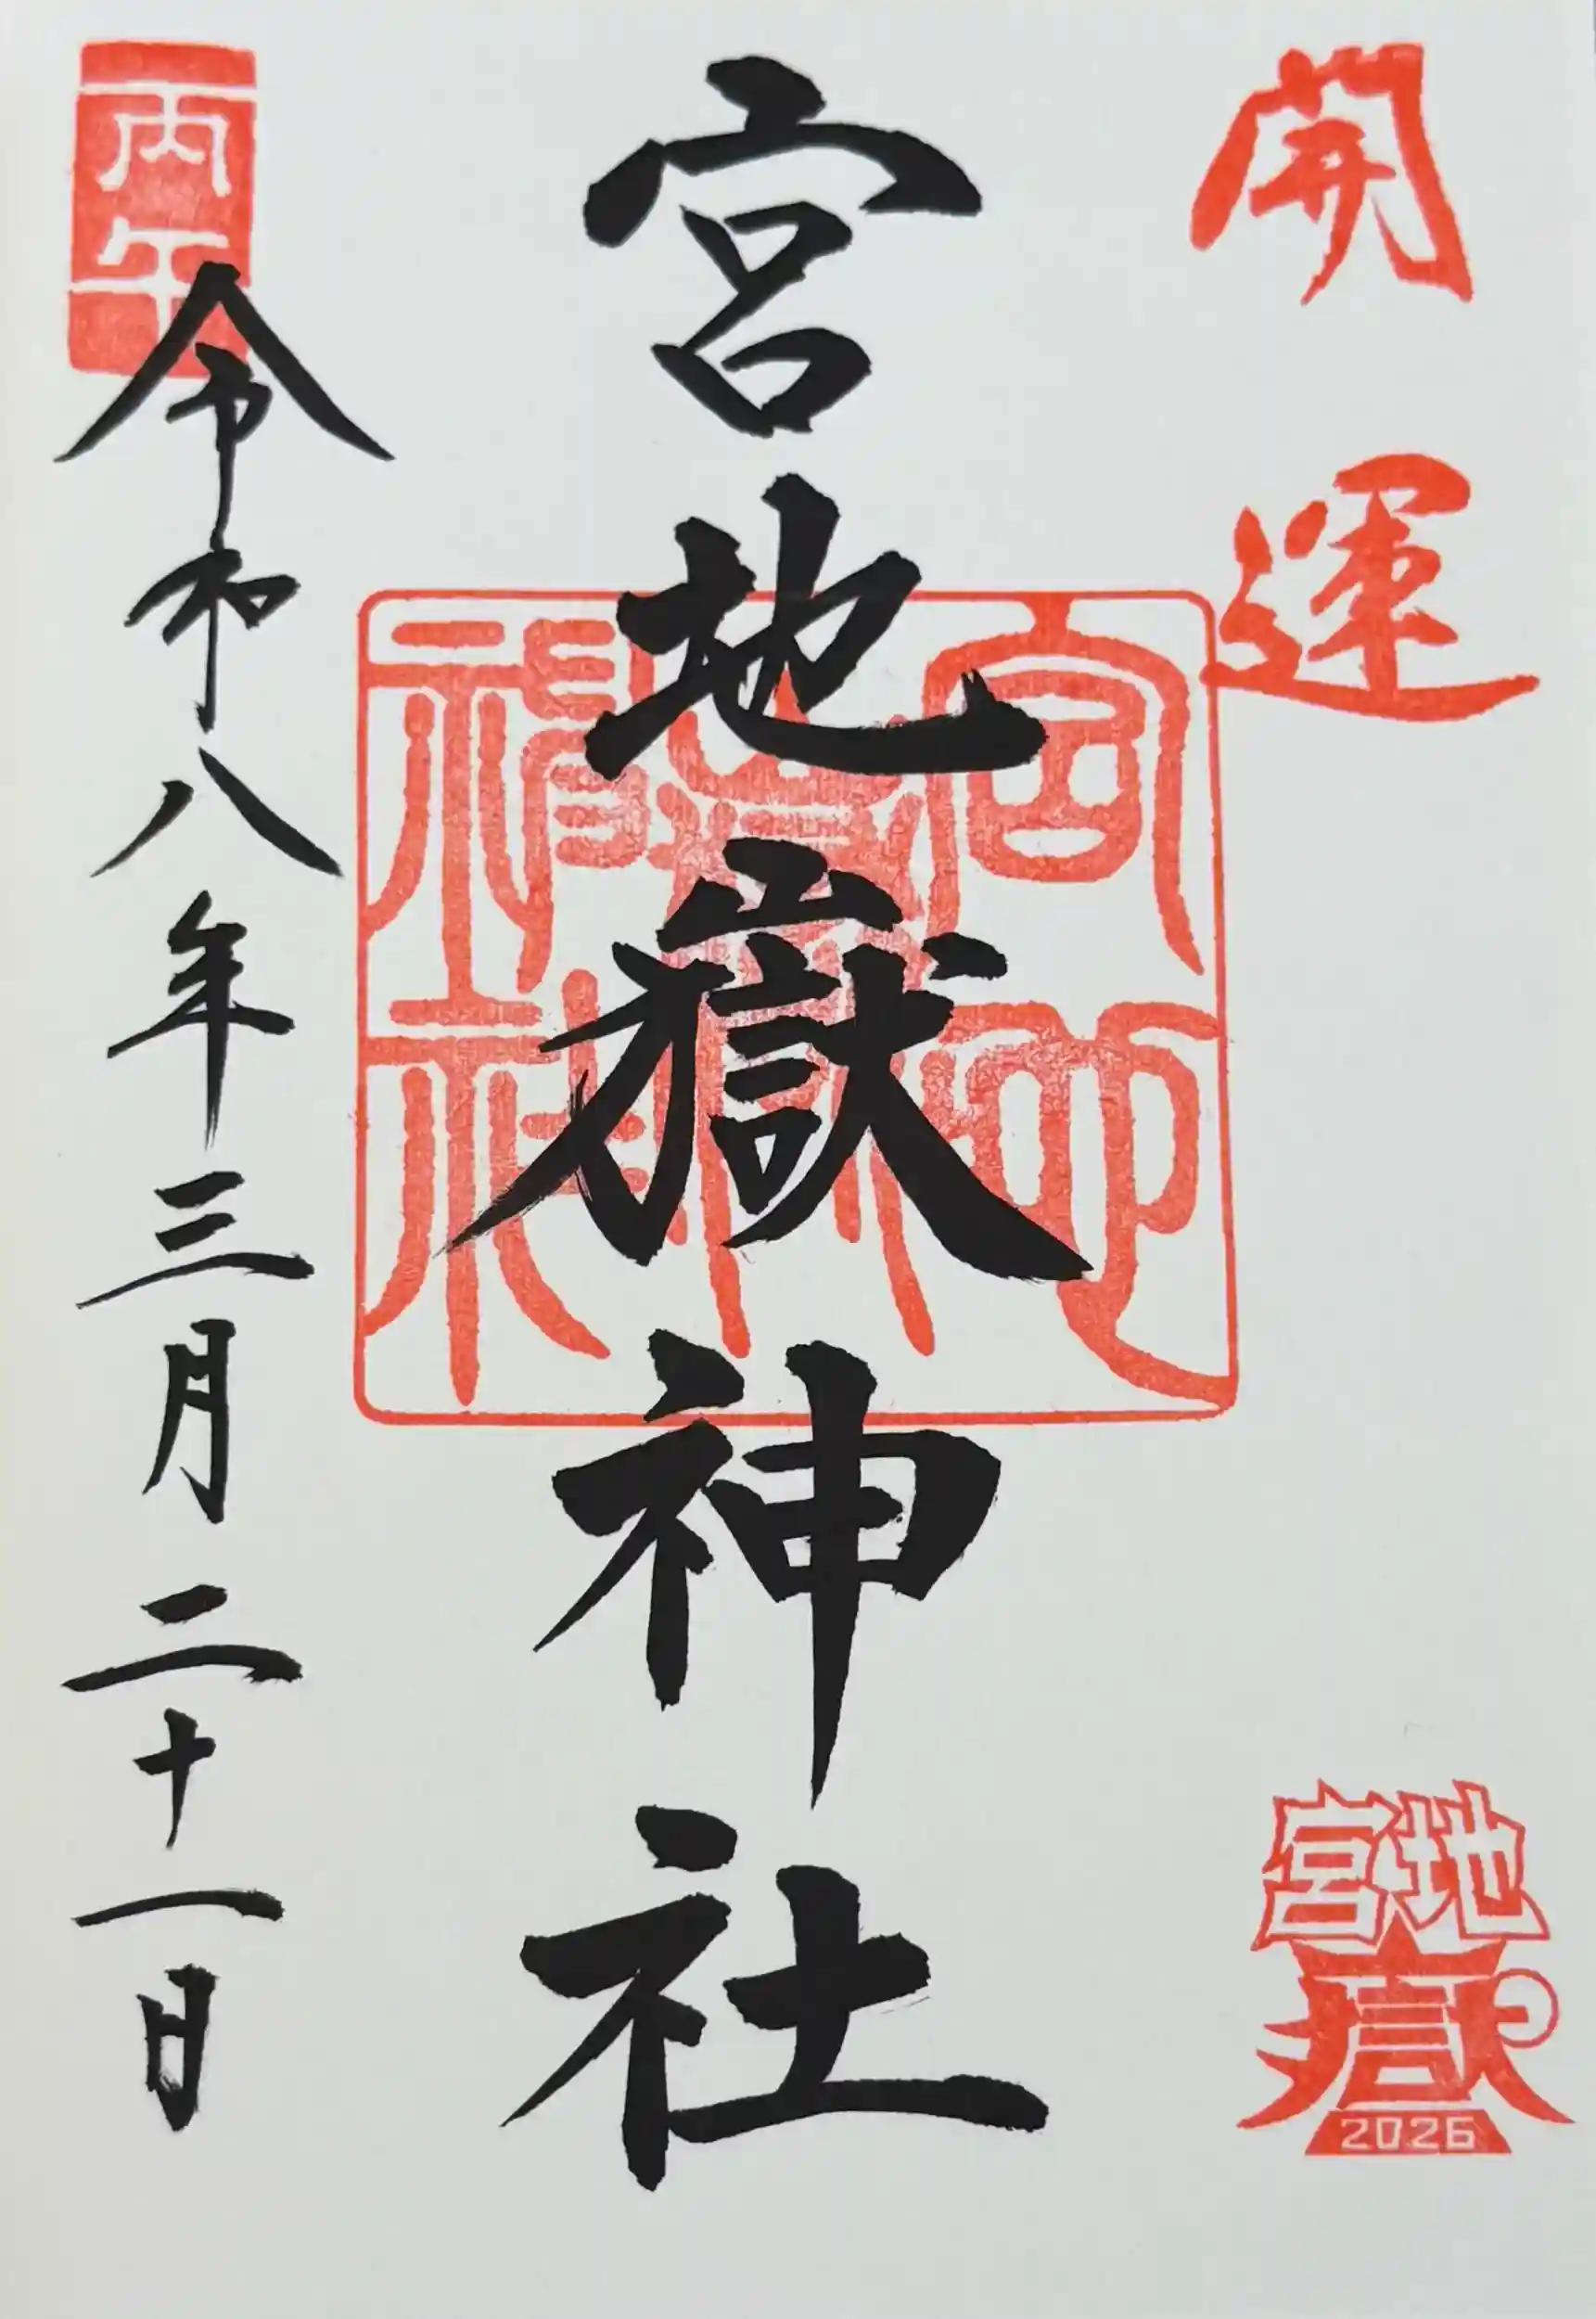 開運
宮地嶽
2026
宮地嶽神社
丙午
令和八年三月二十一日